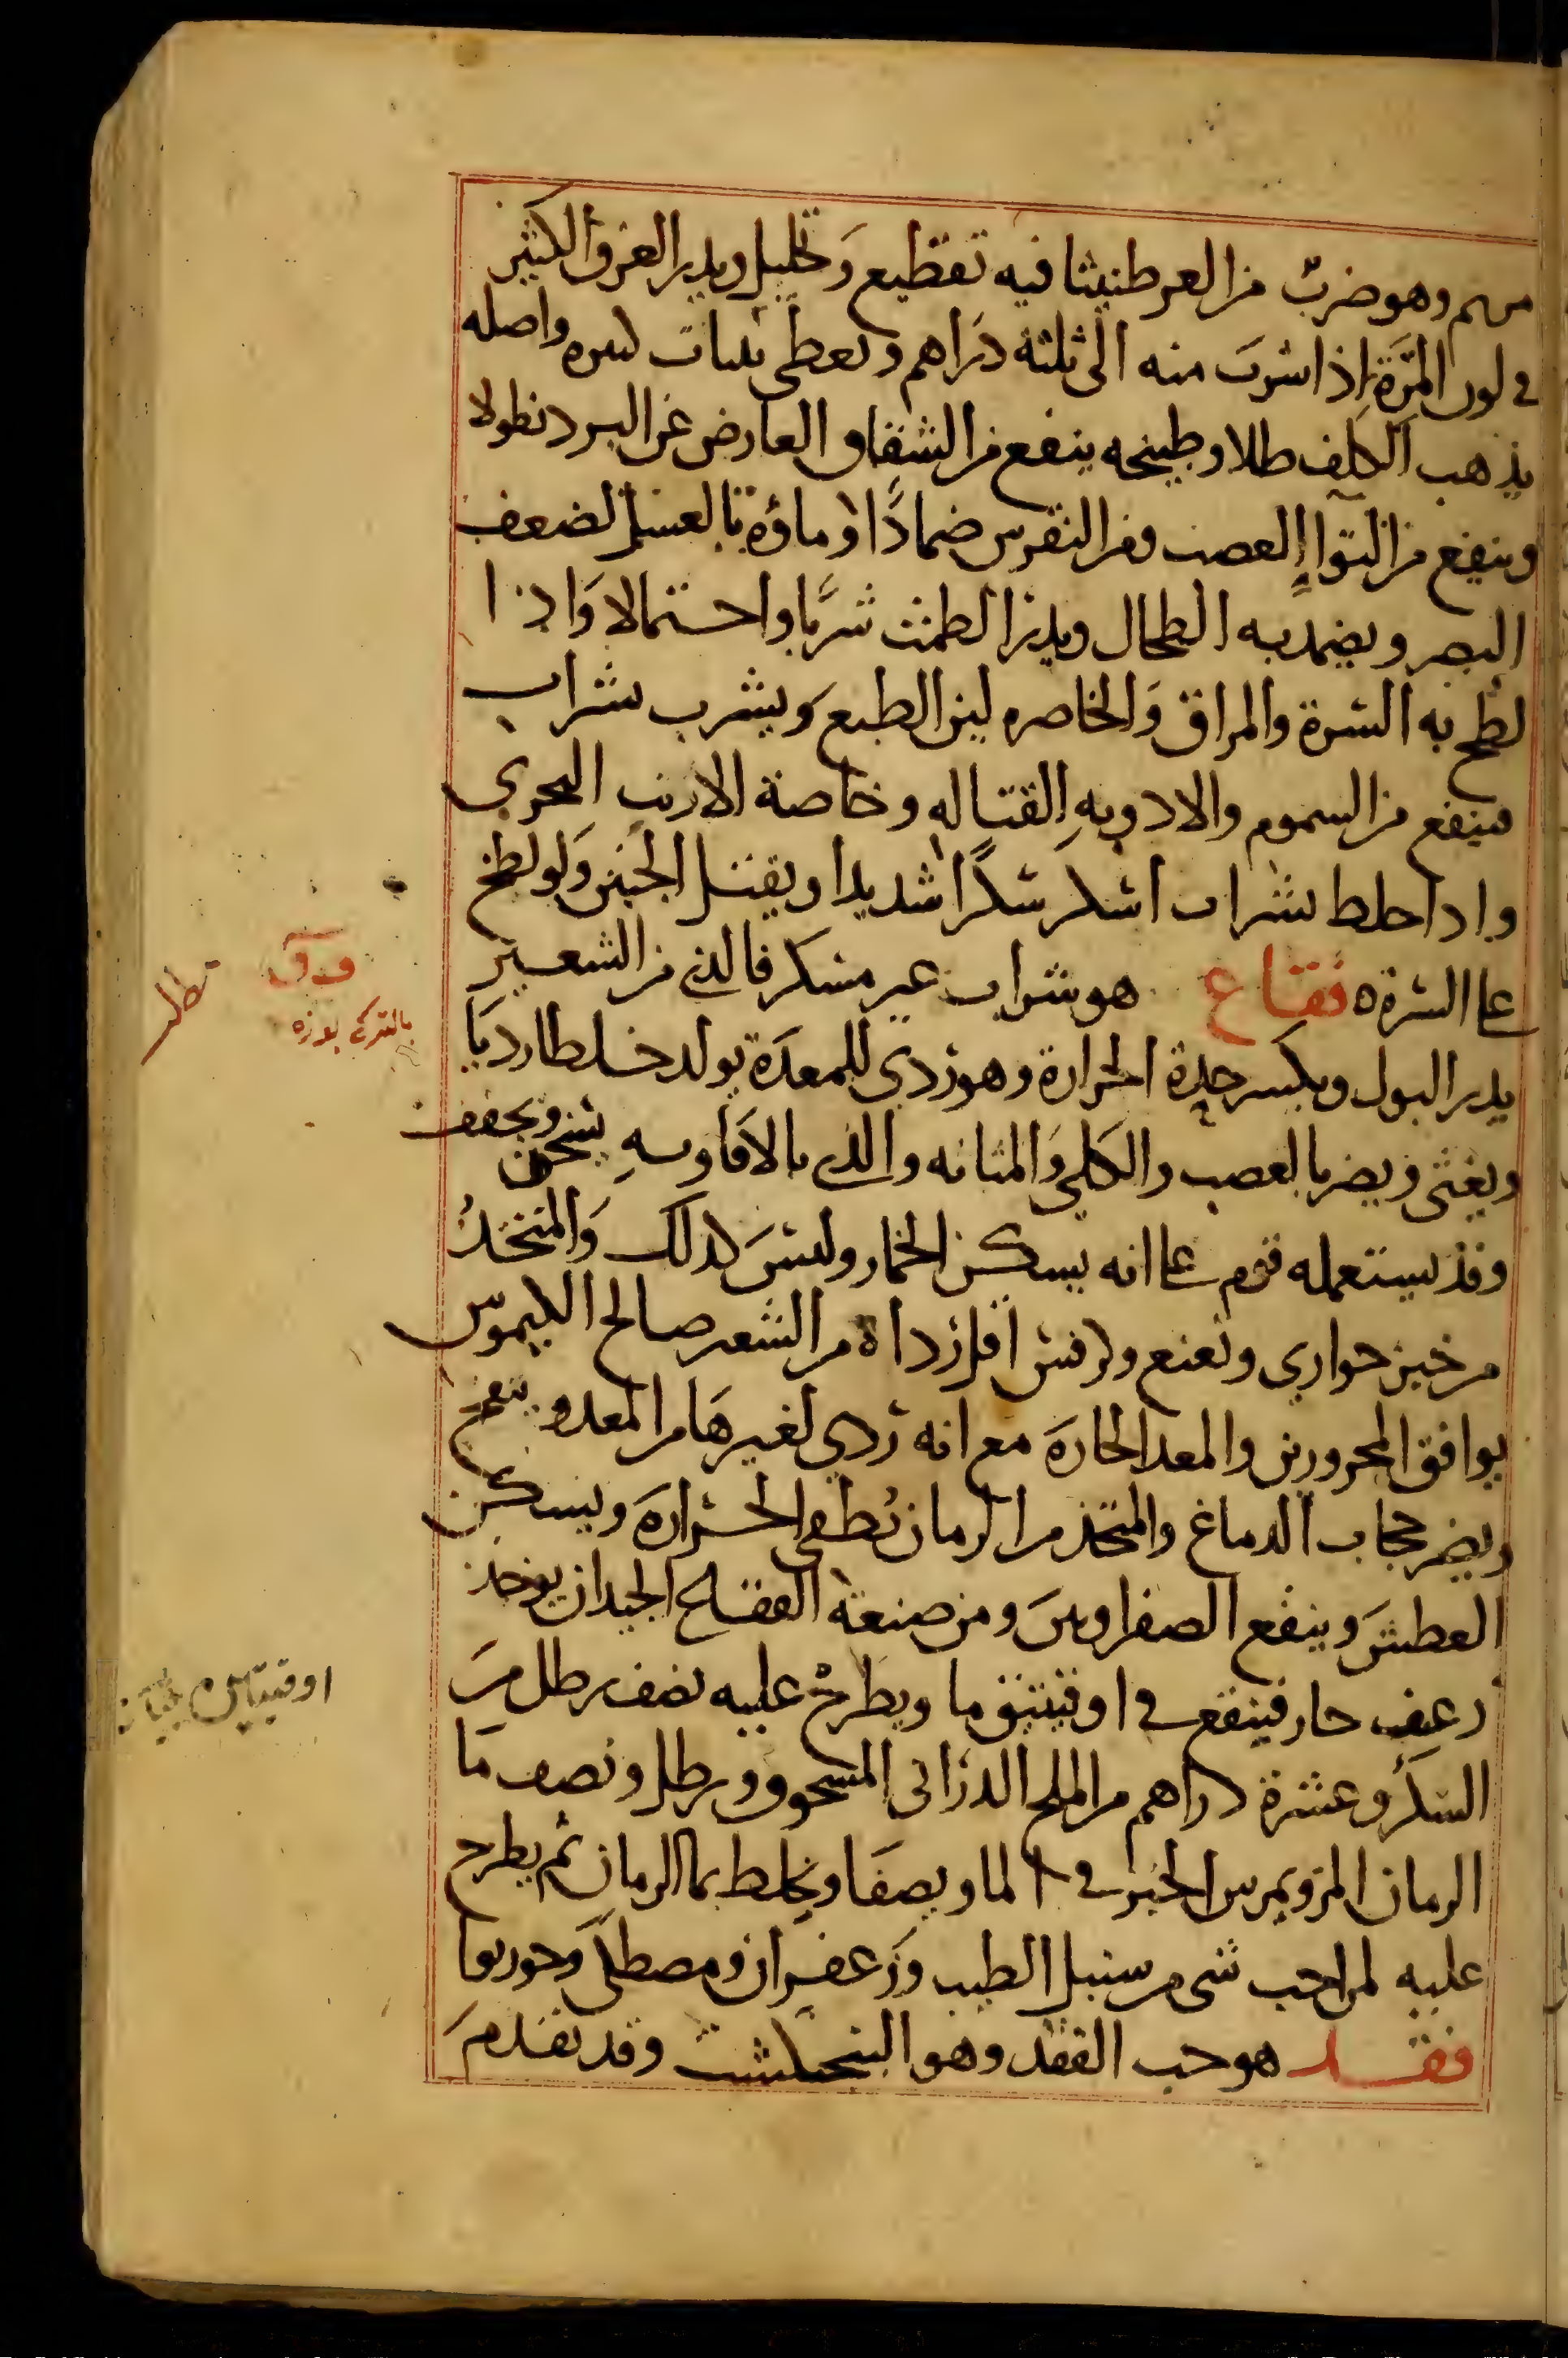 مريم وهو ضربٌ من العرطنيثا فيه تقطيع وَتحليل ويدر العرق الكثير
في لون المرّة اذا شربَ منه الى ثلثة دَراهم وتعطى بثياب كثيره واصله
يذهب الكلف طلا وطبيخه ينفع من الشقاق العارض عن البرد نطولا
وينفع من التواا العصب ومن النقرس ضمادًا وماؤه بالعسل لضعف
البصر ويضمد به الطحال ويدر الطمث شربًا واحتمالا وَاذا
لطخ به السرة والمراق وَالخاصره لين الطبع وَيشرب بشراب
فينفع من السموم والادويهِ القتاله وخاصة الارنب البحري
واذا خلط بشراب اسكر سكرًا شديدا ويقتل الجنين وَلو لطخ
على السرة ه فقاع هو شراب غير مسكر فالذي من الشعير
يدر البول ويكسر حدة الحرارة وهو ردي للمعدَة يولد خلطا رديَا
ويغثى ويضر بالعصب والكلى وَالمثانه والذي بالافاويهِ يسخن ويجفف
وقد يستعمله قوم على انه يسكن الخمار وليسَ كذلك وَالمتخذُ
من خبز حواري ونعنع وكرفس اقل رداة من الشعير صالح الكيموس
يوافق المحرورين والمعد الحارهَ مع انه ردي لغيرهَا من المعد وينفخ
ويضر حجاب الدماغ والمتخذ من الرمان يُطفى الحرارهَ ويسكن
العطشَ وينفع الصفراوينَ ومن صنعة الفقاع الجيد ان يوخذ
رغيف حار فينقع في اوقيتين ما ويطرح عليه نصف رطل منَ
السكَر وعشرة دراهم من الملح الدراني المسحوق ورطل ونصف مَا
الرمان المز ويمرس الخبز في الما ويصفَا ويخلط بما الرمان ثم يطرح
عليه لمن احب شي من سنبل الطيب وَزعفران ومصطكى وَجوز بوا
فقد هو حب الفقد وهو البنجنكشت وقد تقدمَ
ف ق
بالتركي بوزه
مطلب
اوقيتين